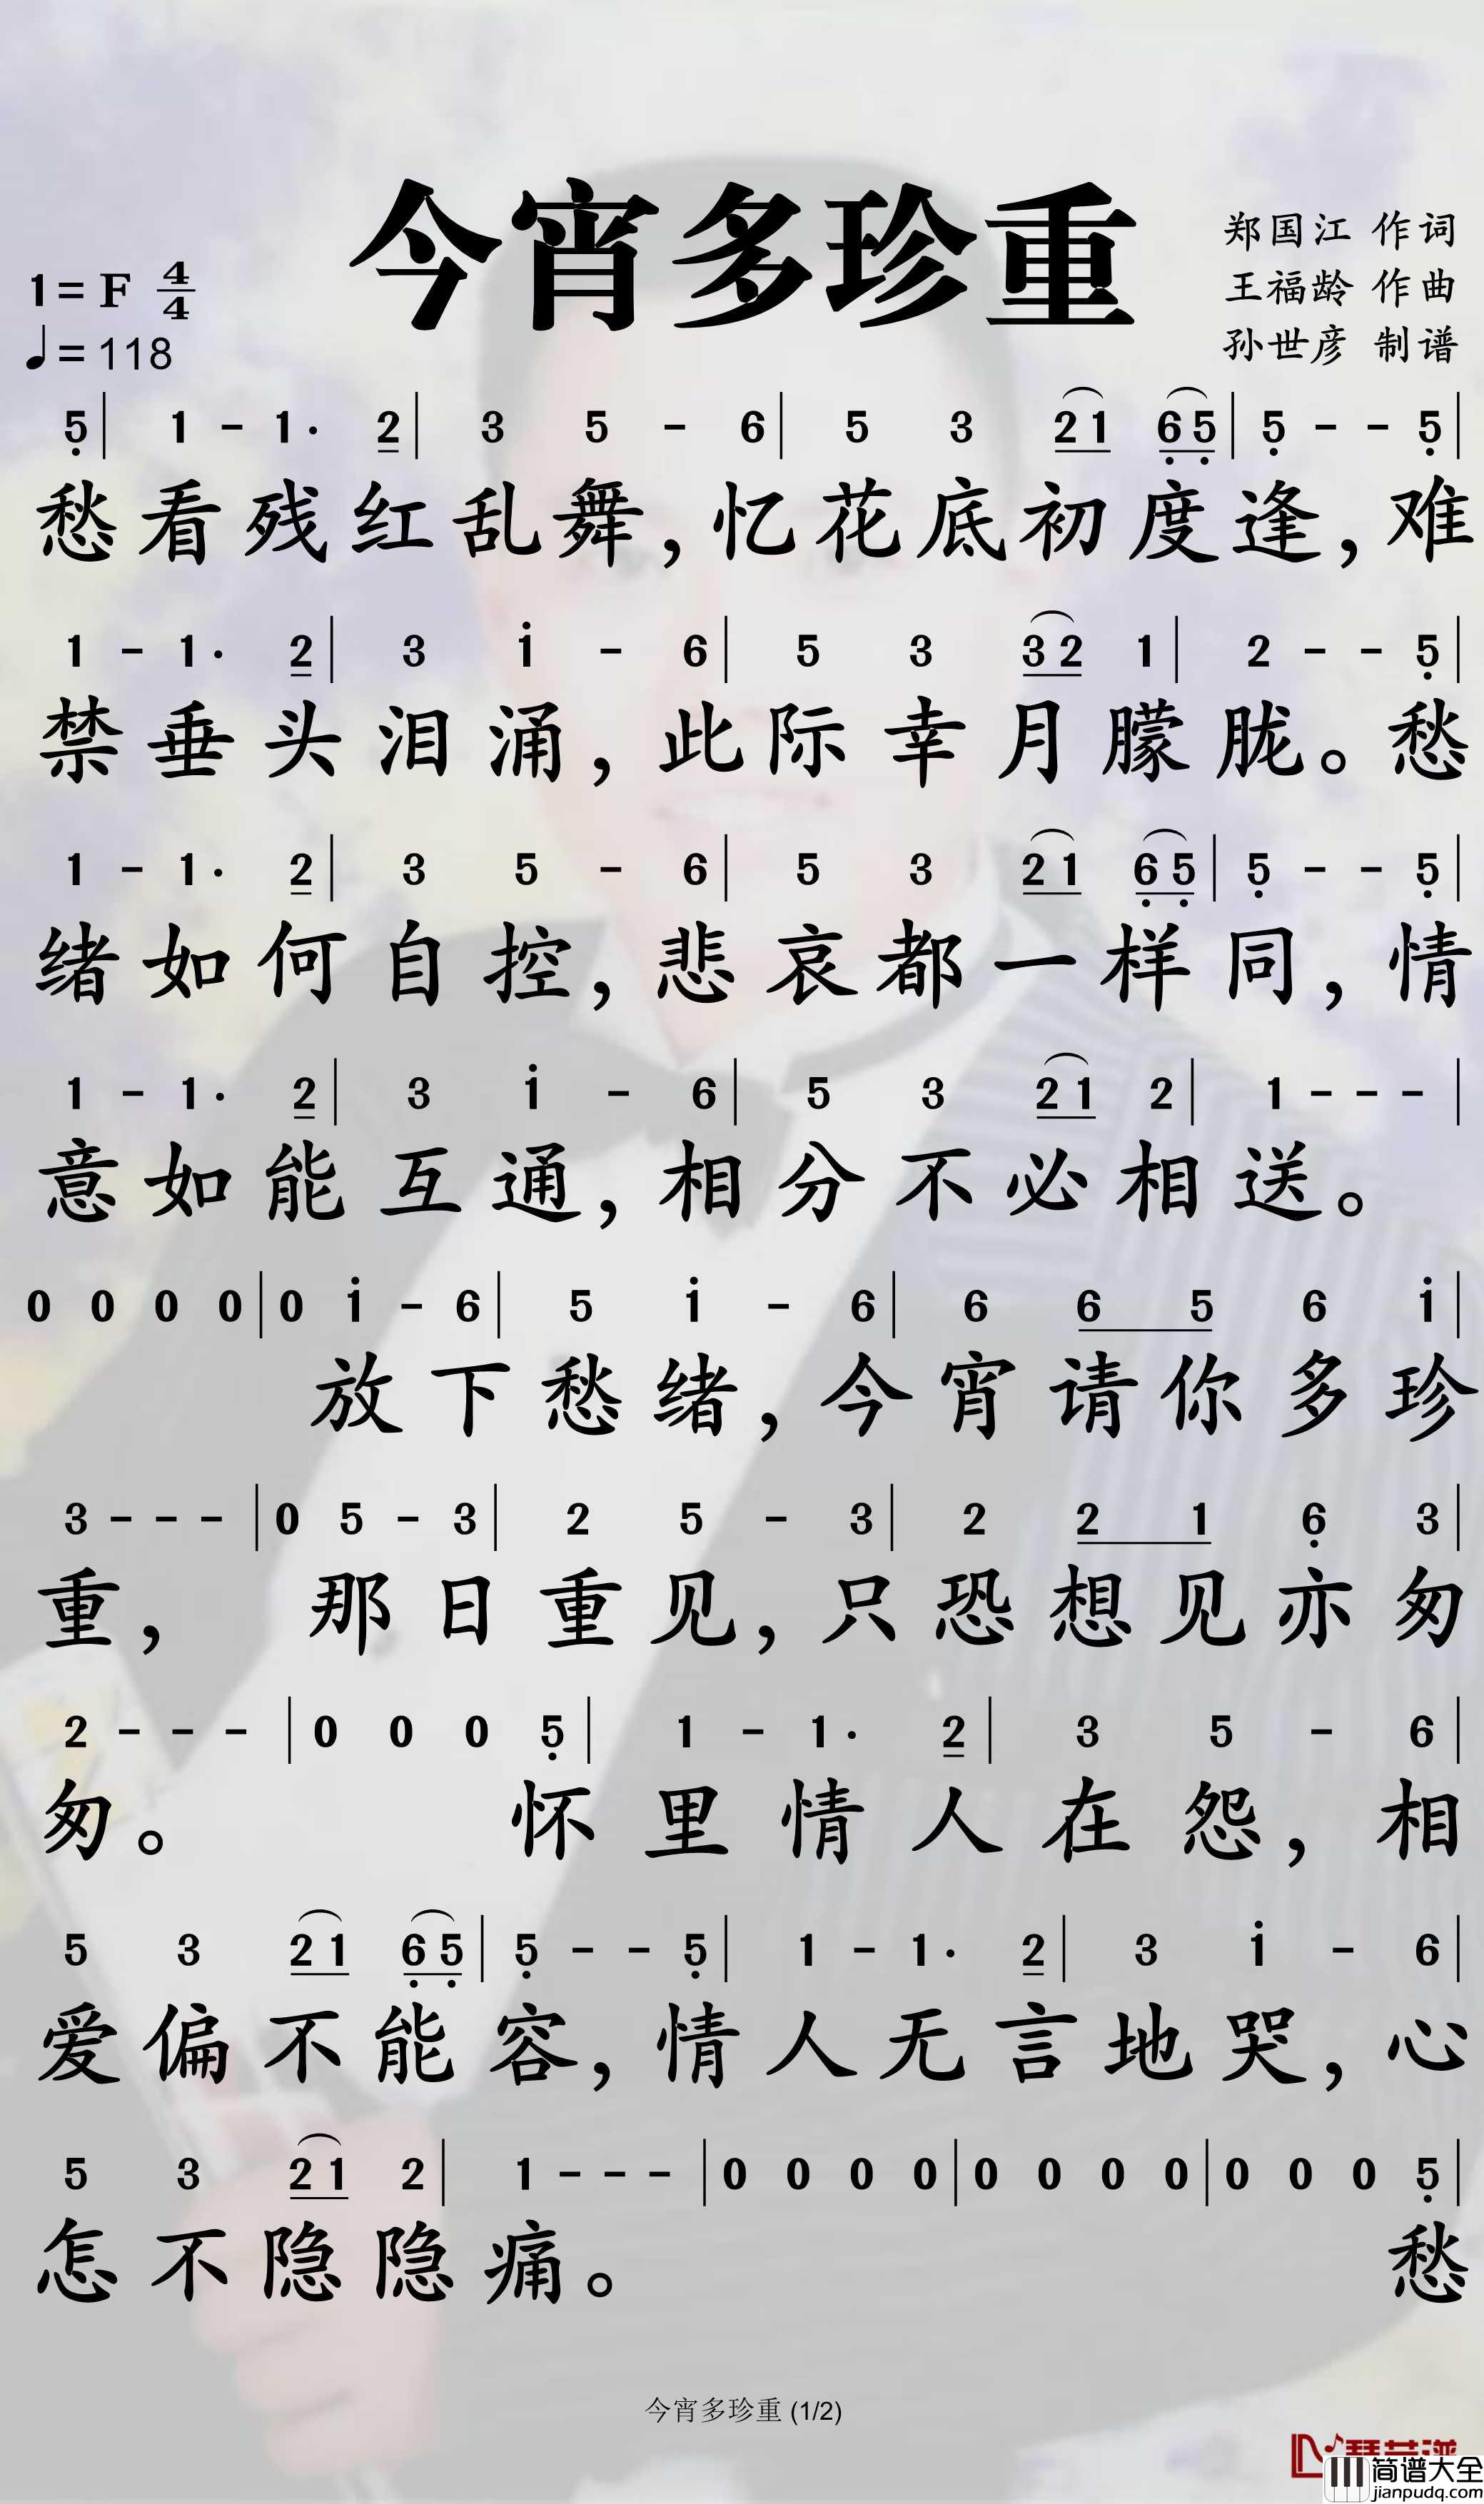 今宵多珍重
郑国江 作词
王福龄 作曲
孙世彦 制谱
1=F 4/4
♩=118
5̣| 1 - 1. 2| 3 5 - 6| 5 3 2 1 6̣ 5̣| 5̣ - - 5̣|
愁看残红乱舞,忆花底初度逢,难
1 - 1. 2| 3 1̇ - 6| 5 3 3 2 1| 2 - - 5̣|
禁垂头泪涌,此际幸月朦胧。愁
1 - 1. 2| 3 5 - 6| 5 3 2 1 6̣ 5̣| 5̣ - - 5̣|
绪如何自控,悲哀都一样同,情
1 - 1. 2| 3 1̇ - 6| 5 3 2 1 2| 1 - - -|
意如能互通,相分不必相送。
0 0 0 0| 0 1̇ - 6| 5 1̇ - 6| 6 6 5 6 1̇|
放下愁绪,今宵请你多珍
3 - - -| 0 5 - 3| 2 5 - 3| 2 2 1 6̣ 3|
重,那日重见,只恐想见亦匆
2 - - -| 0 0 0 5̣| 1 - 1. 2| 3 5 - 6|
匆。怀里情人在怨,相
5 3 2 1 6̣ 5̣| 5̣ - - 5̣| 1 - 1. 2| 3 1̇ - 6|
爱偏不能容,情人无言地哭,心
5 3 2 1 2| 1 - - -| 0 0 0 0| 0 0 0 0| 0 0 0 5̣|
怎不隐隐痛。愁
今宵多珍重 (1/2)
简谱大全
jianpudq.com